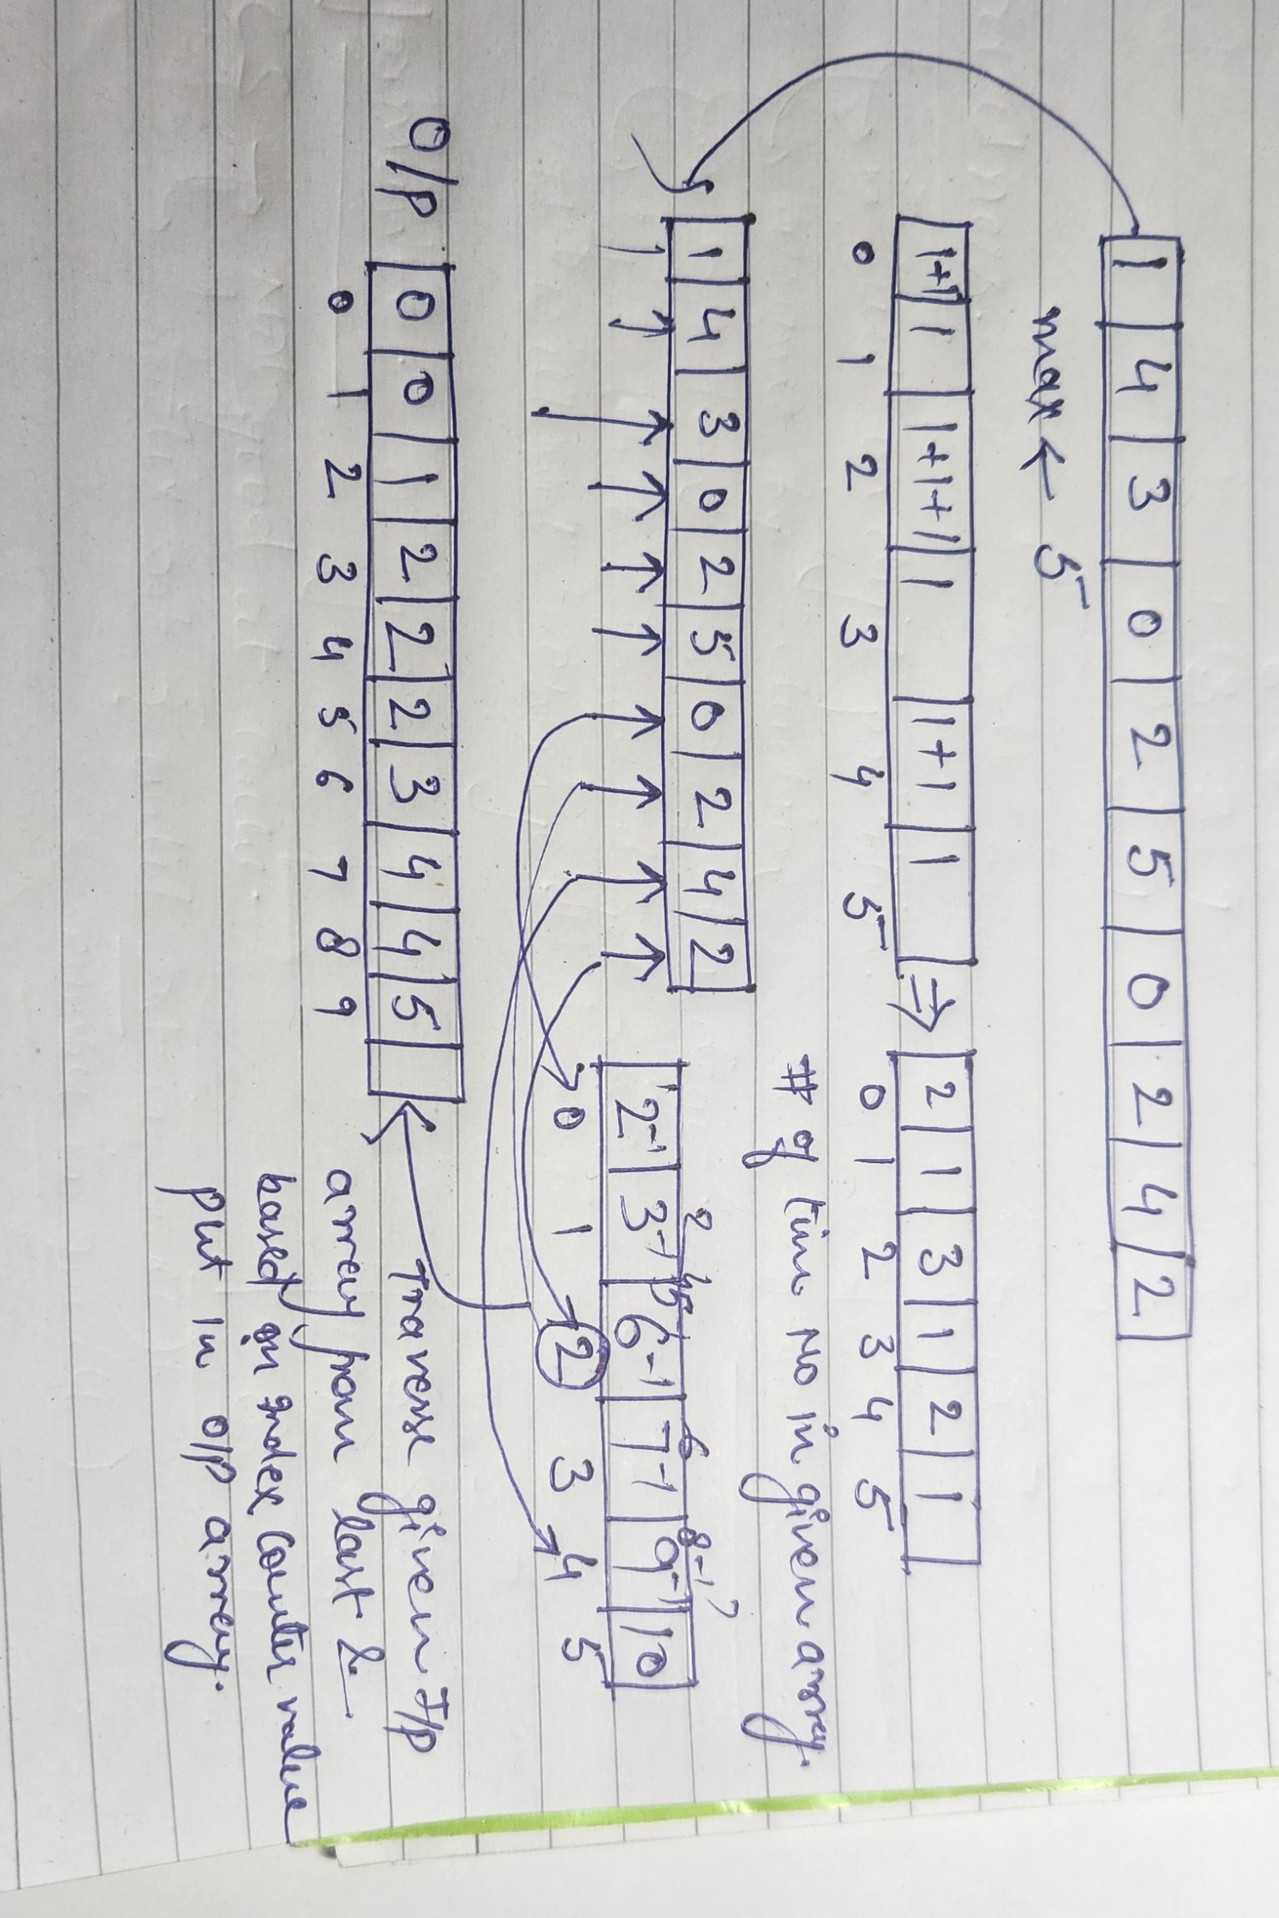 1 4 3 0 2 5 0 2 4 2
max ← 5
1+1 1 1+1+1 1 1+1 1 ⇒ 2 1 3 1 2 1
0 1 2 3 4 5 0 1 2 3 4 5
# of time No in given array.
1 4 3 0 2 5 0 2 4 2
2 4 5 6 8-1 7
2-1 3-1 6-1 7-1 9-1 10
0 1 2 3 4 5
O/P 0 0 1 2 2 2 3 4 4 5
0 1 2 3 4 5 6 7 8 9
Traverse given I/p
array from last &
based on index counter value
put in O/P array.